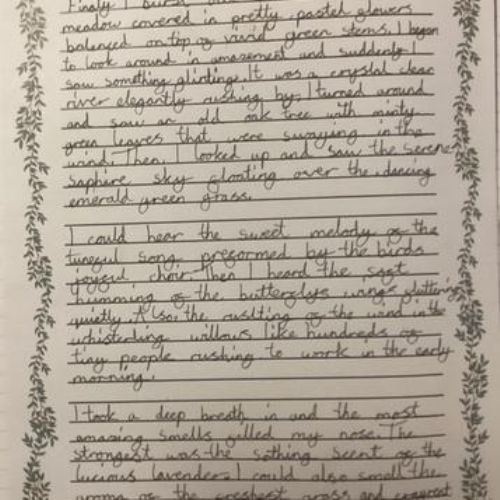 Finaly I burst
meadow covered in pretty, pastel flowers
balenced on top of vivid green stems. I began
to look around in amazement and suddenly I
saw something glinting. It was a crystal clear
river elegantly rushing by. I turned around
and saw an old oak tree with minty
green leaves that were swaying in the
wind. Then, I looked up and saw the serene
saphire sky floating over the dancing
emerald green grass.
I could hear the sweet melody of the
tuneful song preformed by the birds
joyful choir. Then I heard the soft
humming of the butterflys wings fluttering
quietly. Also, the rustling of the wind in the
whisterling willows like hundreds of
tiny people rushing to work in the early
morning.
I took a deep breath in and the most
amazing smells filled my nose. The
strongest was the sothing scent of the
lucious lavender. I could also smell the
aroma of the freshest grass and